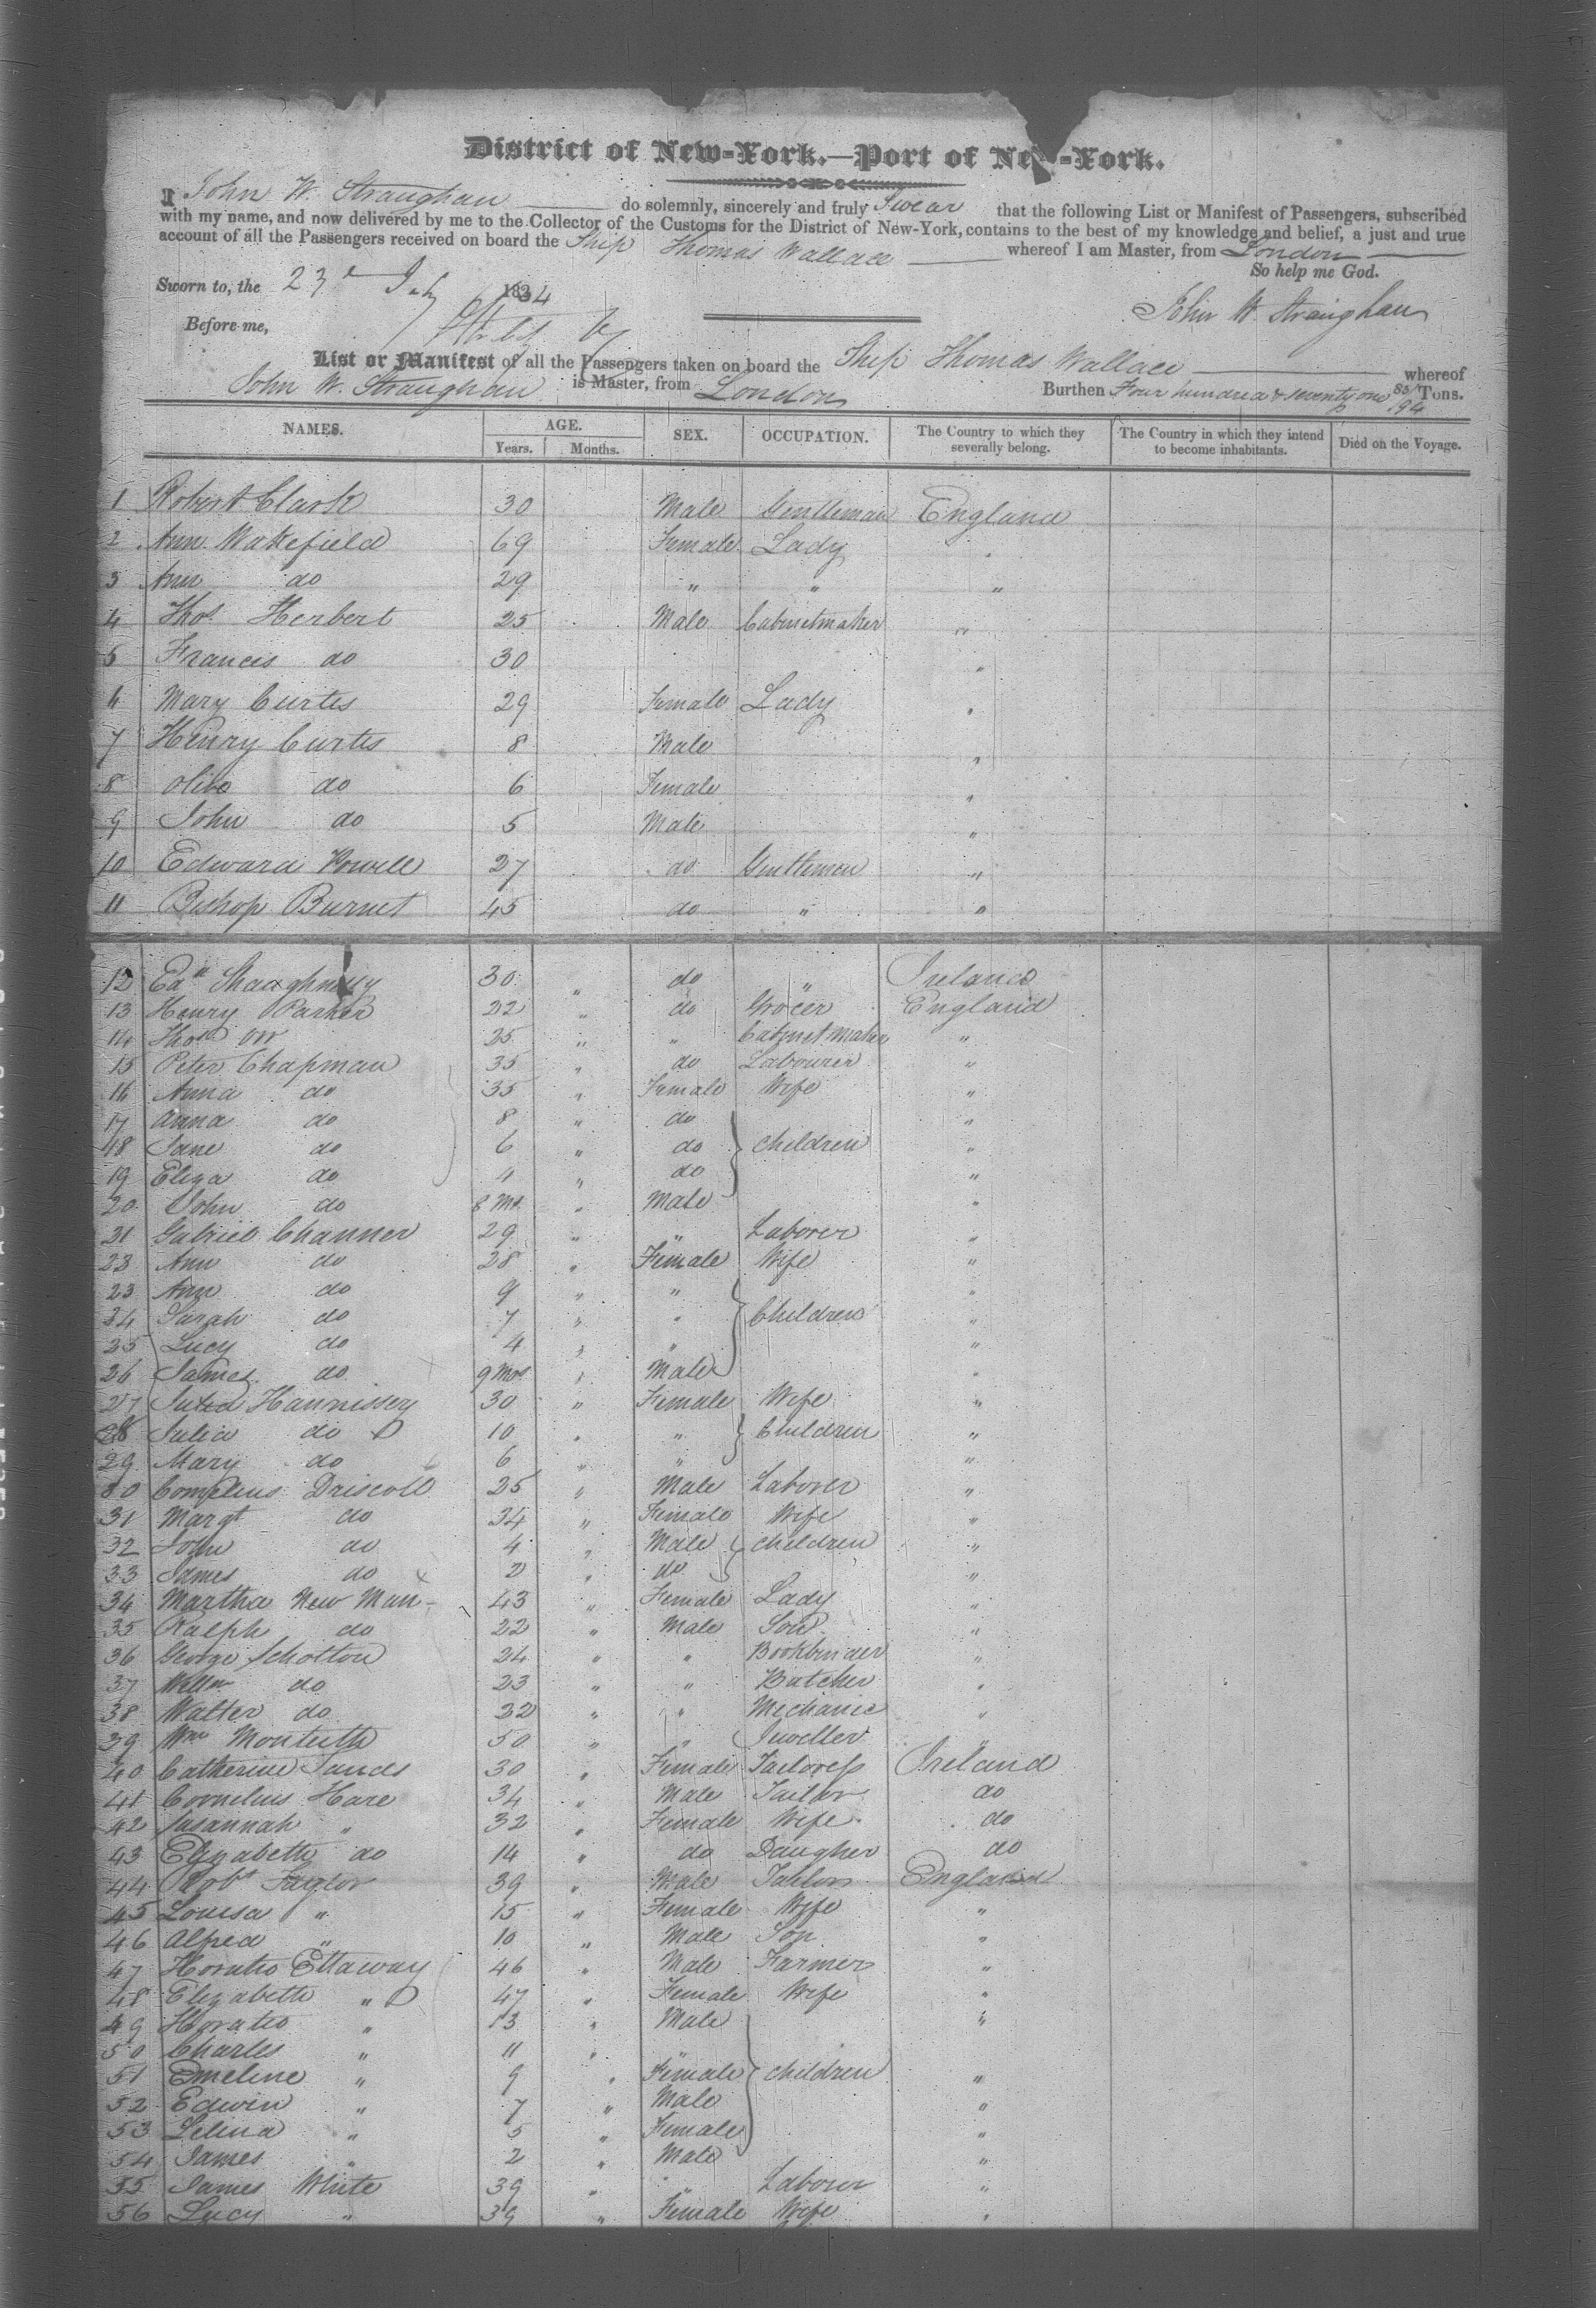 District of New-York.—Port of New-York.
I John W. Straughan do solemnly, sincerely and truly Swear that the following List or Manifest of Passengers, subscribed
with my name, and now delivered by me to the Collector of the Customs for the District of New-York, contains to the best of my knowledge and belief, a just and true
account of all the Passengers received on board the Ship Thomas Wallace whereof I am Master, from London
So help me God.
Sworn to, the 23d July 1834
John W. Straughan
Before me,
List or Manifest of all the Passengers taken on board the Ship Thomas Wallace whereof
John W. Straughan is Master, from London Burthen Four hundred & seventy one 85/94 Tons.
NAMES. AGE. SEX. OCCUPATION. The Country to which they severally belong. The Country in which they intend to become inhabitants. Died on the Voyage.
Years. Months.
1 Robert Clark 30 Male Gentleman England
2 Ann Wakefield 69 Female Lady "
3 Ann do 29 " " "
4 Thos. Herbert 25 Male Cabinetmaker "
5 Francis do 30 "
6 Mary Curtis 29 Female Lady "
7 Henry Curtis 8 Male "
8 Olive do 6 Female "
9 John do 5 Male "
10 Edward Powell 27 do Gentleman "
11 Bishop Burnet 45 do " "
12 Edd Shaughnessy 30 " do " Ireland
13 Henry Parker 22 " do Grocer England
14 Thos Orr 25 " " Cabinet maker "
15 Peter Chapman 35 " do Labourer "
16 Anna do 35 " Female Wife "
17 Anna do 8 " do "
18 Jane do 6 " do children "
19 Eliza do 4 " do "
20 John do 8 Mos " Male "
21 Gabriel Channer 29 " " Laborer "
23 Ann do 28 " Female Wife "
23 Ann do 9 " " "
24 Sarah do 7 " " Children "
25 Lucy do 4 " " "
26 James do 9 Mos " Male "
27 Hannissey 30 " Female Wife "
28 Julia do 10 " " Children "
29 Mary do 6 " " "
30 Cornelius Driscoll 25 " Male Laborer "
31 Margt do 34 " Female Wife "
32 John do 4 " Male children "
33 James do 2 " do "
34 Martha New Man 43 " Female Lady "
35 Ralph do 22 " Male Son "
36 George Schotton 24 " " Bookbinder "
37 Willm do 23 " " Butcher "
38 Walter do 32 " " Mechanic "
39 Wm Monteith 50 " " Jeweller "
40 Catherine Sands 30 " Female Tailoress Ireland
41 Cornelius Hare 34 " Male Tailor do
42 Susannah " 32 " Female Wife do
43 Elizabeth do 14 " do Daugher do
44 Robt Taylor 39 " Male Tailor England
45 Louisa " 15 " Female Wife "
46 Alfred " 10 " Male Son "
47 Horatio Ettaway 46 " Male Farmer "
48 Elizabeth " 47 " Female Wife "
49 Horatio " 13 " Male "
50 Charles " 11 " "
51 Emeline " 9 " Female children "
52 Edwin " 7 " Male "
53 Selina " 5 " Female "
54 James " 2 " Male "
55 James White 39 " " Labourer "
56 Lucy " 39 " Female Wife "